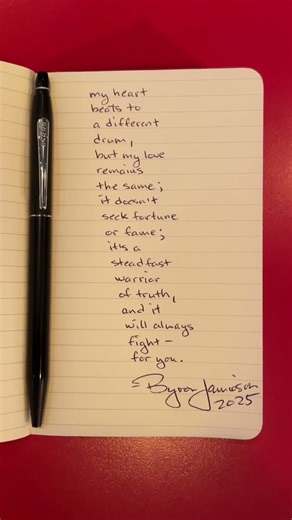 my heart
beats to
a different
drum,
but my love
remains
the same;
it doesn't
seek fortune
or fame;
it's a
steadfast
warrior
of truth,
and it
will always
fight –
for you.
- Byron Jamieson
2025